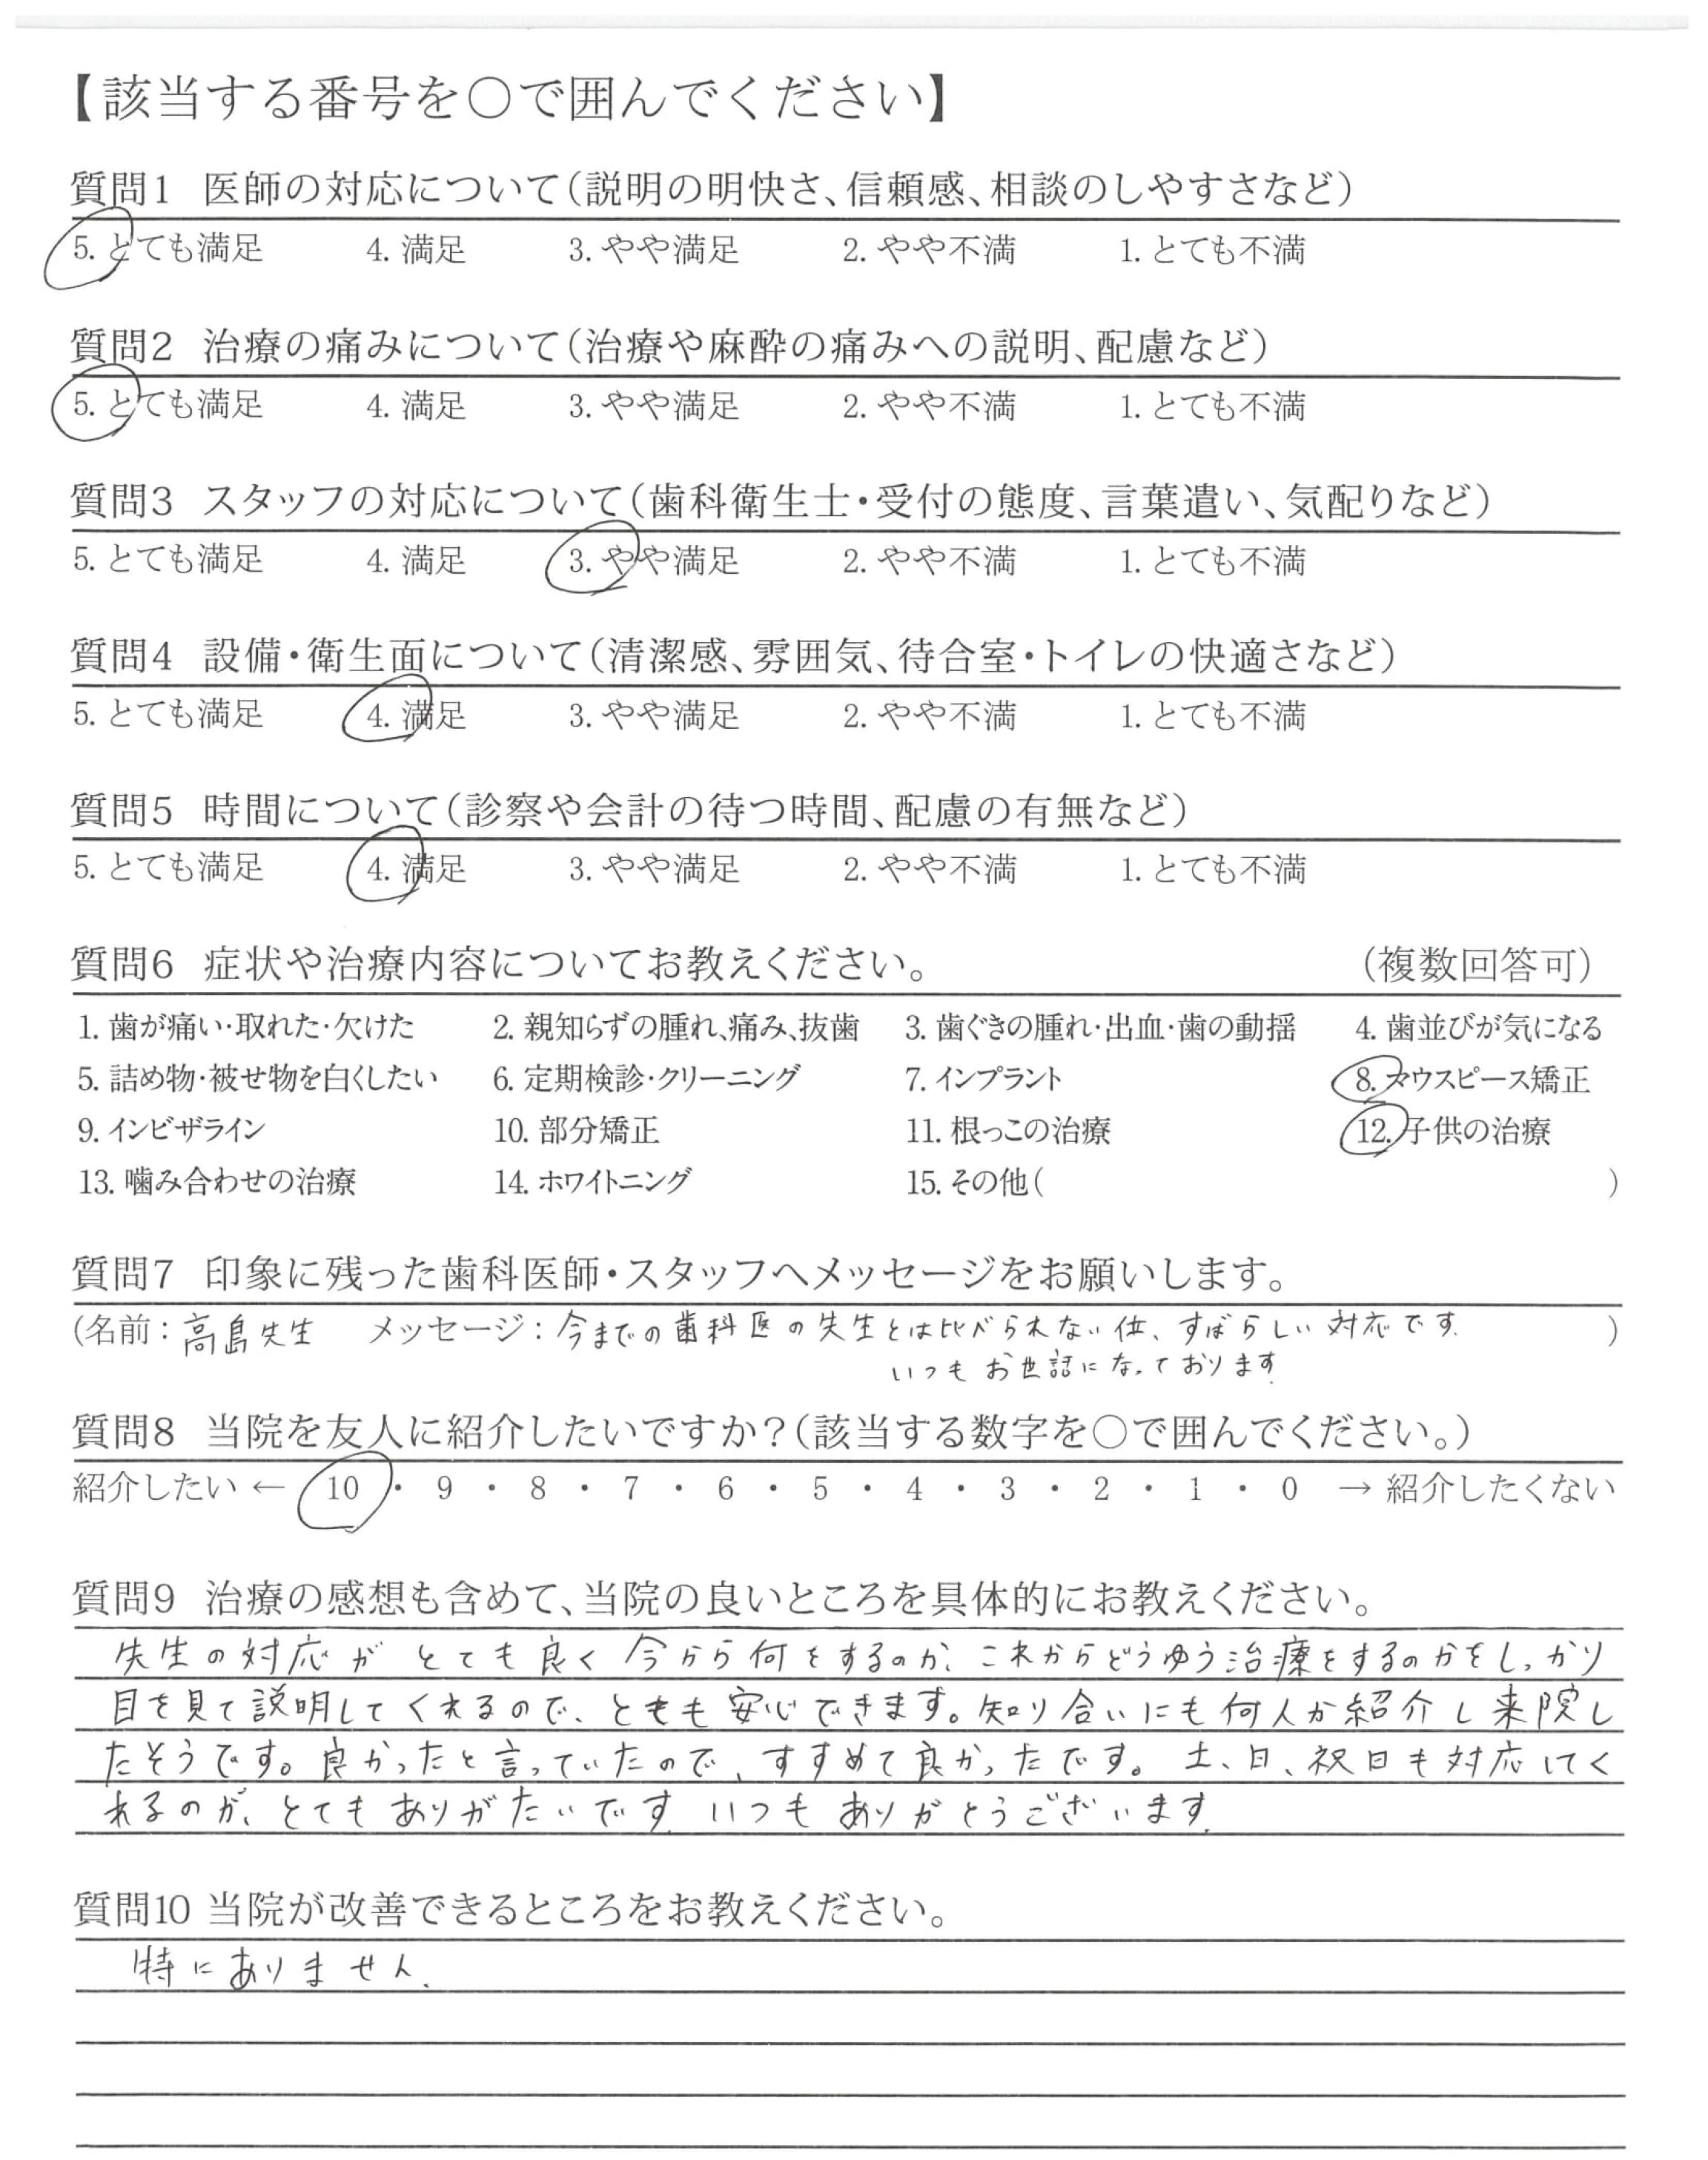 【該当する番号を○で囲んでください】
質問1 医師の対応について(説明の明快さ、信頼感、相談のしやすさなど)
5. とても満足 4. 満足 3. やや満足 2. やや不満 1. とても不満
質問2 治療の痛みについて(治療や麻酔の痛みへの説明、配慮など)
5. とても満足 4. 満足 3. やや満足 2. やや不満 1. とても不満
質問3 スタッフの対応について(歯科衛生士・受付の態度、言葉遣い、気配りなど)
5. とても満足 4. 満足 3. やや満足 2. やや不満 1. とても不満
質問4 設備・衛生面について(清潔感、雰囲気、待合室・トイレの快適さなど)
5. とても満足 4. 満足 3. やや満足 2. やや不満 1. とても不満
質問5 時間について(診察や会計の待つ時間、配慮の有無など)
5. とても満足 4. 満足 3. やや満足 2. やや不満 1. とても不満
質問6 症状や治療内容についてお教えください。 (複数回答可)
1. 歯が痛い・取れた・欠けた 2. 親知らずの腫れ、痛み、抜歯 3. 歯ぐきの腫れ・出血・歯の動揺 4. 歯並びが気になる
5. 詰め物・被せ物を白くしたい 6. 定期検診・クリーニング 7. インプラント 8. マウスピース矯正
9. インビザライン 10. 部分矯正 11. 根っこの治療 12. 子供の治療
13. 噛み合わせの治療 14. ホワイトニング 15. その他( )
質問7 印象に残った歯科医師・スタッフへメッセージをお願いします。
(名前：高島先生 メッセージ：今までの歯科医の先生とは比べられない位、すばらしい対応です. )
いつもお世話になっております.
質問8 当院を友人に紹介したいですか？(該当する数字を○で囲んでください。)
紹介したい ← 10 ・ 9 ・ 8 ・ 7 ・ 6 ・ 5 ・ 4 ・ 3 ・ 2 ・ 1 ・ 0 → 紹介したくない
質問9 治療の感想も含めて、当院の良いところを具体的にお教えください。
先生の対応が とても良く 今から何をするのか、これからどうゆう治療をするのかをしっかり
目を見て説明してくれるので、とても安心できます。知り合いにも何人か紹介し来院し
たそうです。良かったと言っていたので、すすめて良かったです。 土、日、祝日も対応してく
れるのが、とてもありがたいです. いつもありがとうございます.
質問10 当院が改善できるところをお教えください。
特にありません.